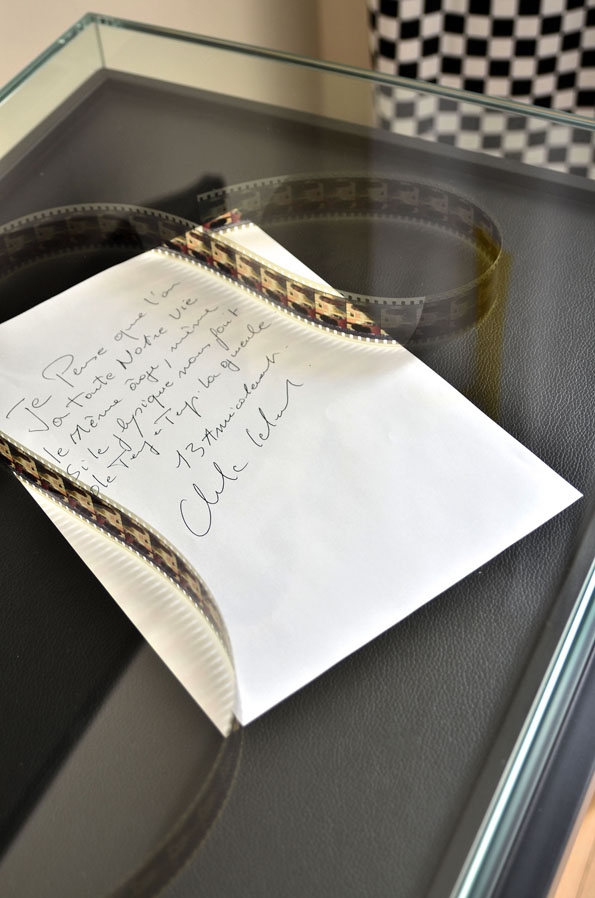 Je Pense que l'on
a toute Notre Vie
le même âge, même
si le physique nous fout
de Temps en Temps la gueule
13 Amicalement.